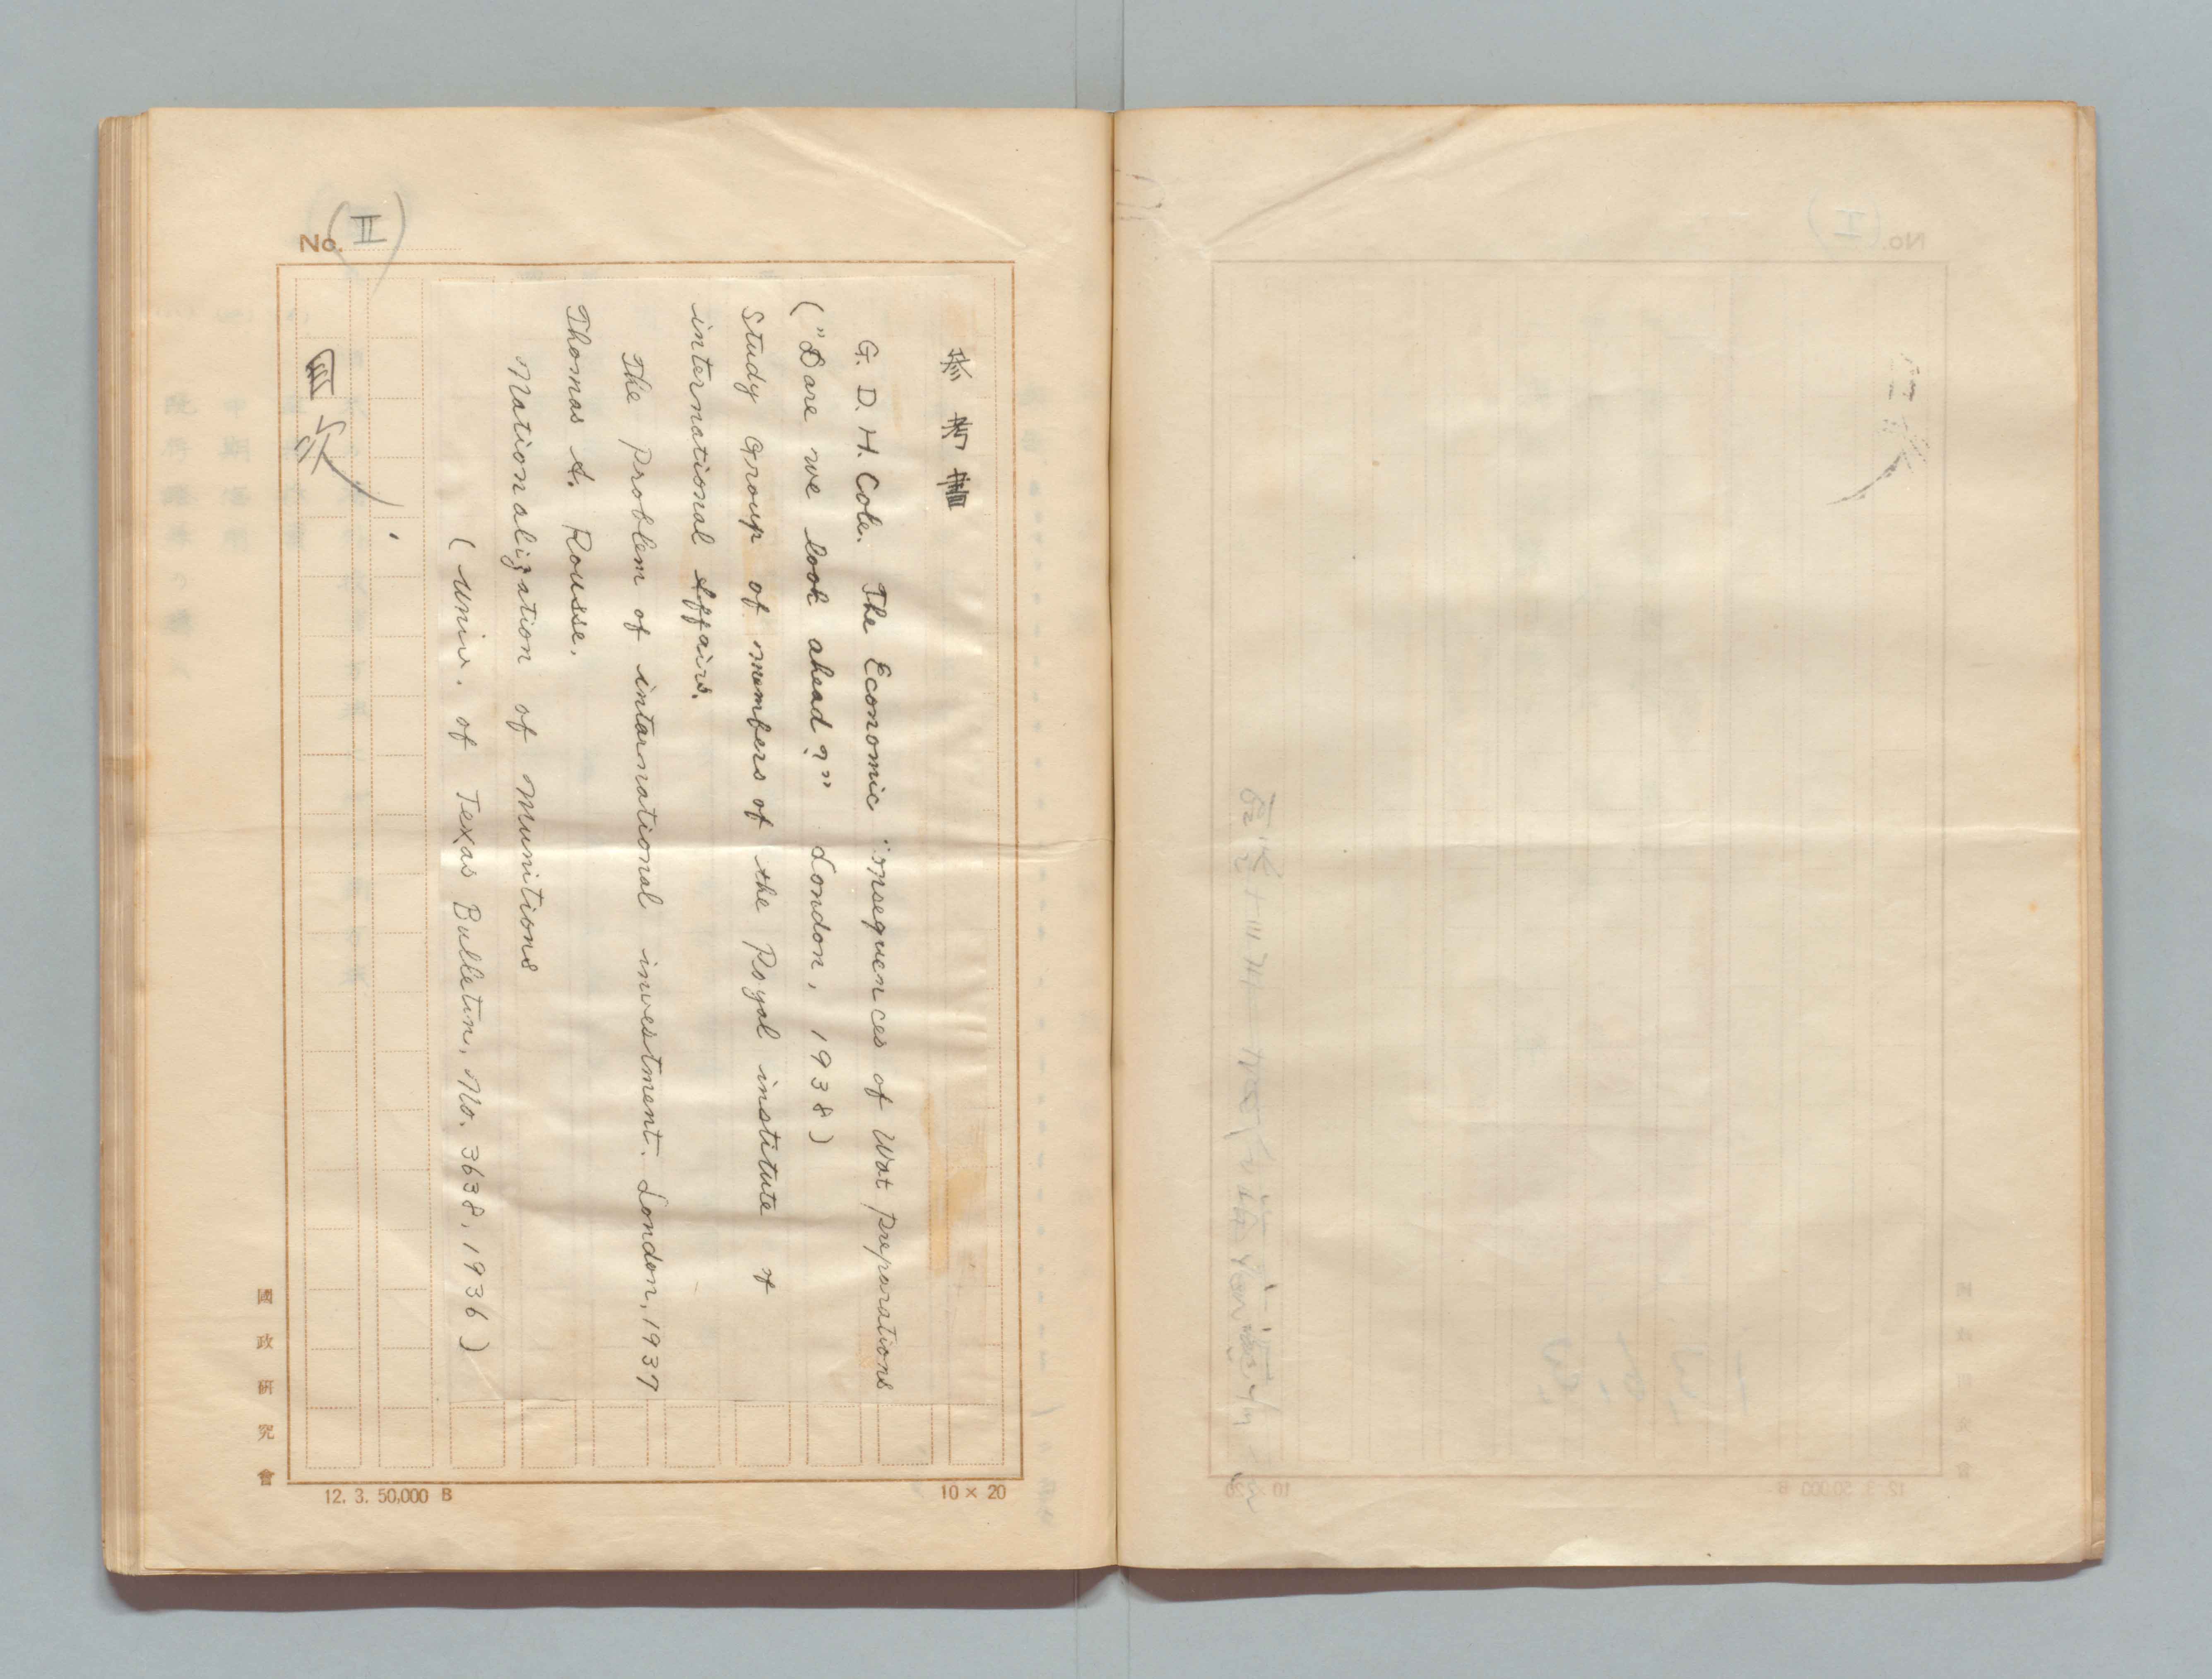 No. (II)
参考書
G. D. H. Cole. The Economic onsequences of Wat preparations
("Dare we look ahead?" London, 1938)
Study Group of members of the Royal institute of
international Affairs.
The problem of intarnational investment. London, 1937
Thomas A. Rousse.
Nationalization of Munitions
(Univ. of Texas Bulletin, No. 3638, 1936)
目次
國政研究會
12. 3. 50,000 B
10 × 20